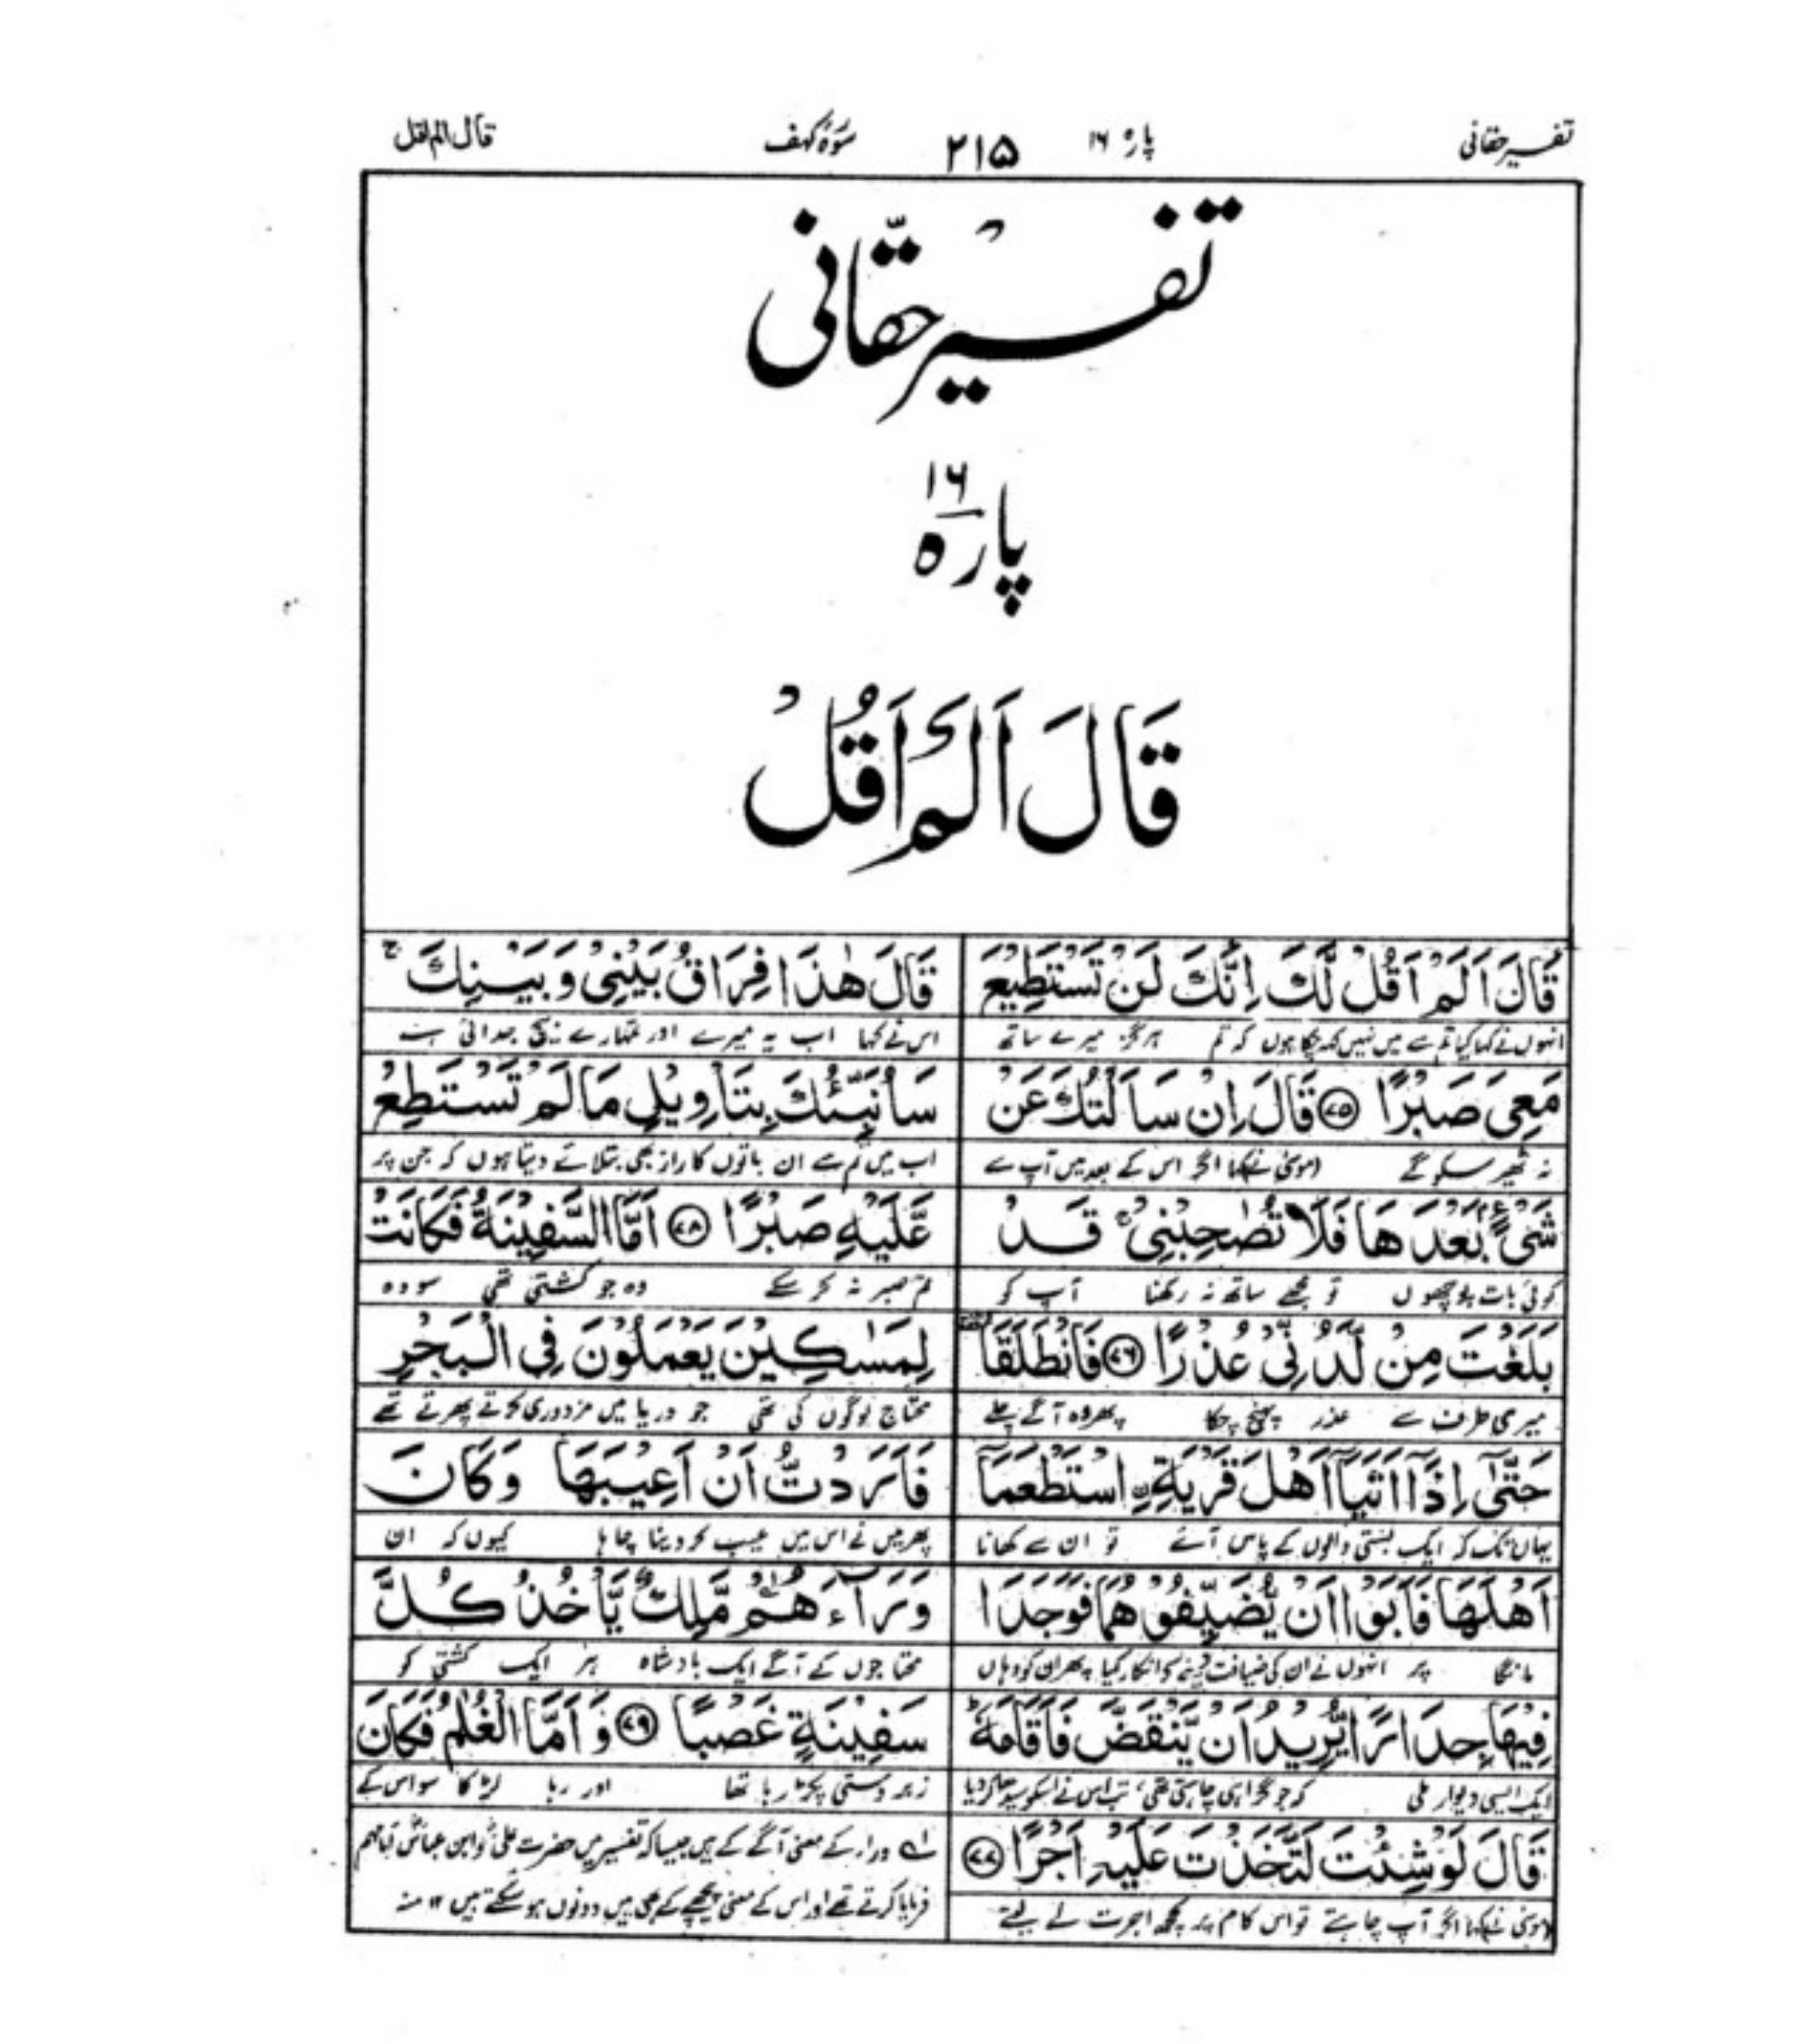 تفسیر حقانی
پارہ ۱۶
۲۱۵
سورۂ کہف
قال الم اقل
تفسیر حقّانی
پارہ ۱۶
قَالَ اَلَمْ اَقُلْ
قَالَ اَلَمْ اَقُلْ لَّكَ اِنَّكَ لَنْ تَسْتَطِيْعَ
انہوں نے کہا کیا تم سے میں نہیں کہہ چکا ہوں کہ تم ہرگز میرے ساتھ
مَعِىَ صَبْرًا ۷۵ قَالَ اِنْ سَاَلْتُكَ عَنْ
نہ ٹھیر سکو گے (موسیٰ نے) کہا اگر اس کے بعد میں آپ سے
شَىْءٍۭ بَعْدَهَا فَلَا تُصٰحِبْنِىْ ۚ قَدْ
کوئی بات پوچھوں تو مجھے ساتھ نہ رکھنا آپ کو
بَلَغْتَ مِنْ لَّدُنِّىْ عُذْرًا ۷۶ فَانْطَلَقَا
میری طرف سے عذر پہنچ چکا پھر وہ آگے چلے
حَتّٰٓى اِذَآ اَتَيَآ اَهْلَ قَرْيَةِ ۨاسْتَطْعَمَآ
یہاں تک کہ ایک بستی والوں کے پاس آئے تو ان سے کھانا
اَهْلَهَا فَاَبَوْا اَنْ يُّضَيِّفُوْهُمَا فَوَجَدَا
مانگا پر انہوں نے ان کی ضیافت کرنے کو انکار کیا پھر ان کو وہاں
فِيْهَا جِدَارًا يُّرِيْدُ اَنْ يَّنْقَضَّ فَاَقَامَهٗ ؕ
ایک ایسی دیوار ملی کہ جو گرا ہی چاہتی تھی، تب اس نے اسکو سیدھا کر دیا
قَالَ لَوْ شِئْتَ لَتَّخَذْتَ عَلَيْهِ اَجْرًا ۷۷
(موسیٰ نے) کہا اگر آپ چاہتے تو اس کام پر کچھ اجرت لے لیتے
قَالَ هٰذَا فِرَاقُ بَيْنِىْ وَبَيْنِكَ ۚ
اس نے کہا اب یہ میرے اور تمہارے بیچ جدائی ہے
سَاُنَبِّئُكَ بِتَاْوِيْلِ مَا لَمْ تَسْتَطِعْ
اب میں تم سے ان باتوں کا راز بھی بتلائے دیتا ہوں کہ جن پر
عَّلَيْهِ صَبْرًا ۷۸ اَمَّا السَّفِيْنَةُ فَكَانَتْ
تم صبر نہ کر سکے وہ جو کشتی تھی سو وہ
لِمَسٰكِيْنَ يَعْمَلُوْنَ فِى الْبَحْرِ
محتاج لوگوں کی تھی جو دریا میں مزدوری کرتے پھرتے تھے
فَاَرَدْتُّ اَنْ اَعِيْبَهَا وَكَانَ
پھر میں نے اس میں عیب کر دینا چاہا کیوں کہ ان
وَرَآءَهُمْ مَّلِكٌ يَّاْخُذُ كُلَّ
محتاجوں کے آگے ایک بادشاہ ہر ایک کشتی کو
سَفِيْنَةٍ غَصْبًا ۷۹ وَاَمَّا الْغُلٰمُ فَكَانَ
زبردستی پکڑ رہا تھا اور رہا لڑکا سو اس کے
۱ے وراء کے معنی آگے کے ہیں جیسا کہ تفسیر میں حضرت علیؓ و ابن عباسؓ
فرمایا کرتے تھے اور اس کے معنی پیچھے کے بھی ہیں دونوں ہو سکتے ہیں ۱۲ منہ